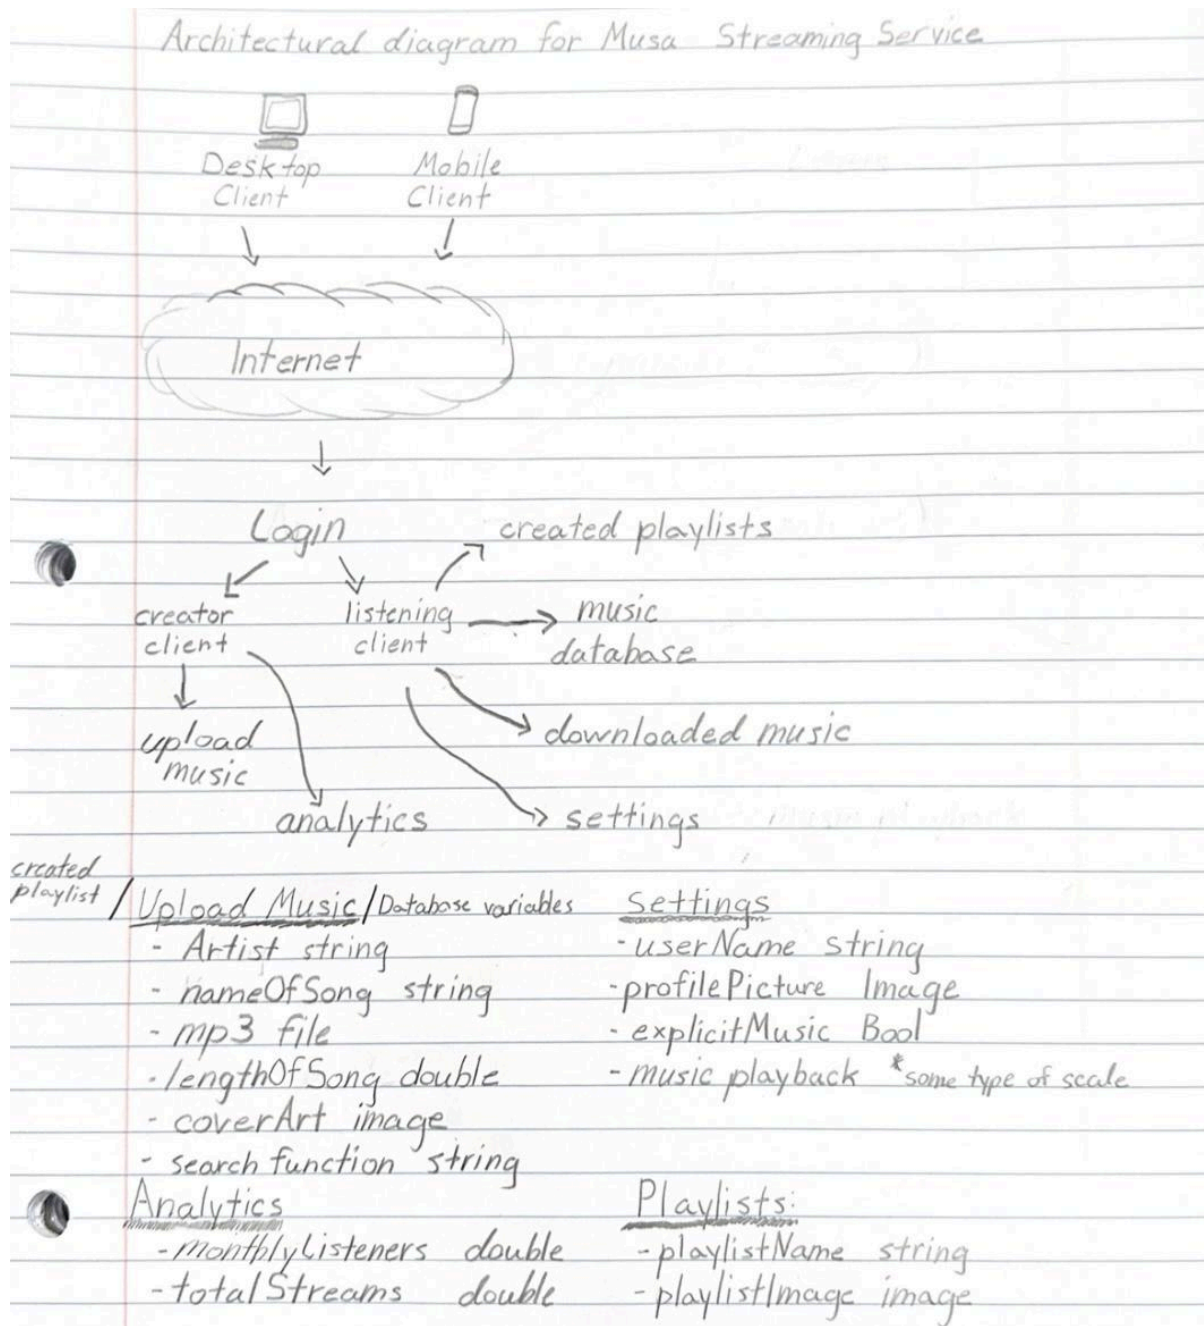 Architectural diagram for Musa Streaming Service
Desktop
Client
Mobile
Client
Internet
Login
created playlists
creator
client
listening
client
music
database
upload
music
downloaded music
analytics
settings
created
playlist / Upload Music / Database variables
- Artist string
- nameOfSong string
- mp3 file
- lengthOfSong double
- coverArt image
- search function string
Settings
- userName string
- profilePicture Image
- explicitMusic Bool
- music playback *some type of scale
Analytics
- monthlyListeners double
- totalStreams double
Playlists:
- playlistName string
- playlistImage image